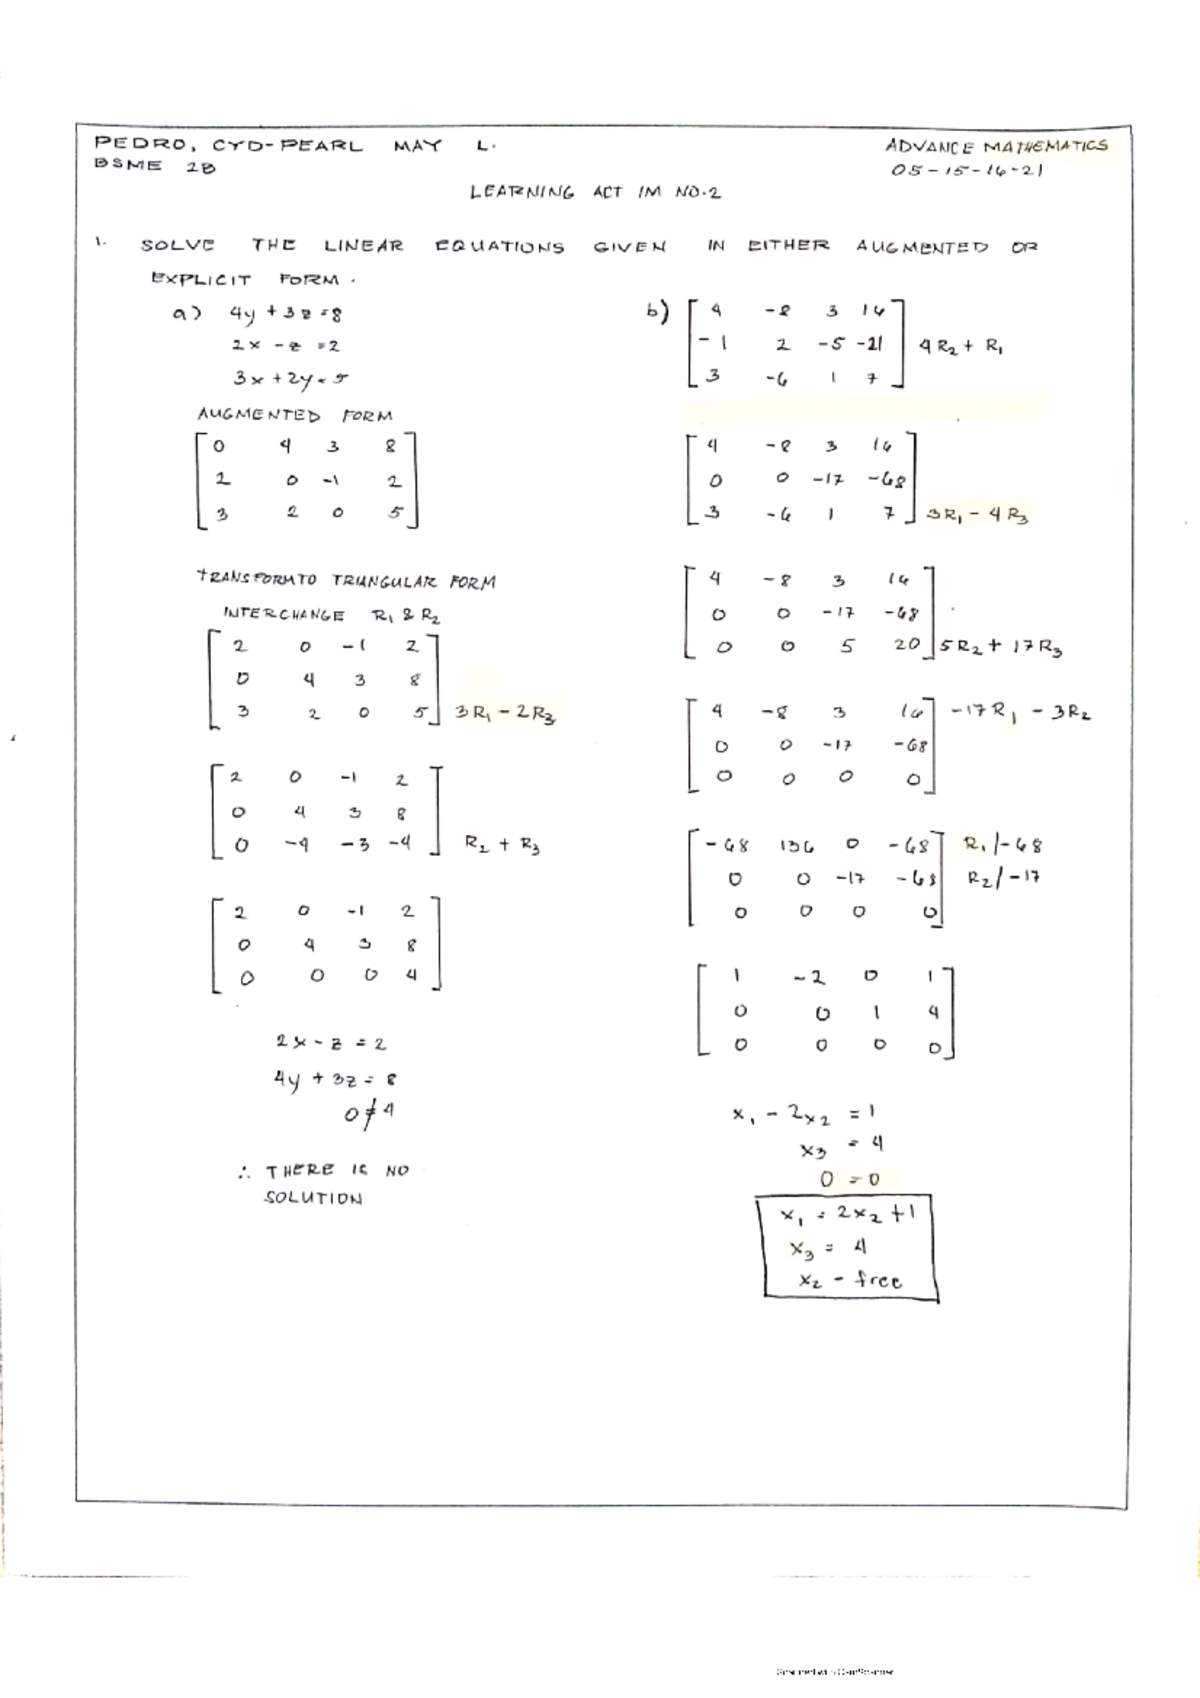 PEDRO, CYD-PEARL MAY L.
BSME 2B
ADVANCE MATHEMATICS
05-15-16-21
LEARNING ACT IM NO.2
1. SOLVE THE LINEAR EQUATIONS GIVEN IN EITHER AUGMENTED OR
EXPLICIT FORM.
a) 4y + 3z = 8
2x - z = 2
3x + 2y = 5
AUGMENTED FORM
0 4 3 8
2 0 -1 2
3 2 0 5
TRANSFORM TO TRIANGULAR FORM
INTERCHANGE R1 & R2
2 0 -1 2
0 4 3 8
3 2 0 5 3R1 - 2R3
2 0 -1 2
0 4 3 8
0 -4 -3 -4 R2 + R3
2 0 -1 2
0 4 3 8
0 0 0 4
2x - z = 2
4y + 3z = 8
0 ≠ 4
∴ THERE IS NO
SOLUTION
b) 4 -8 3 16
-1 2 -5 -21 4R2 + R1
3 -6 1 7
4 -8 3 16
0 0 -17 -68
3 -6 1 7 3R1 - 4R3
4 -8 3 16
0 0 -17 -68
0 0 5 20 5R2 + 17R3
4 -8 3 16 -17R1 - 3R2
0 0 -17 -68
0 0 0 0
-68 136 0 -68 R1/-68
0 0 -17 -68 R2/-17
0 0 0 0
1 -2 0 1
0 0 1 4
0 0 0 0
x1 - 2x2 = 1
x3 = 4
0 = 0
x1 = 2x2 + 1
x3 = 4
x2 - free